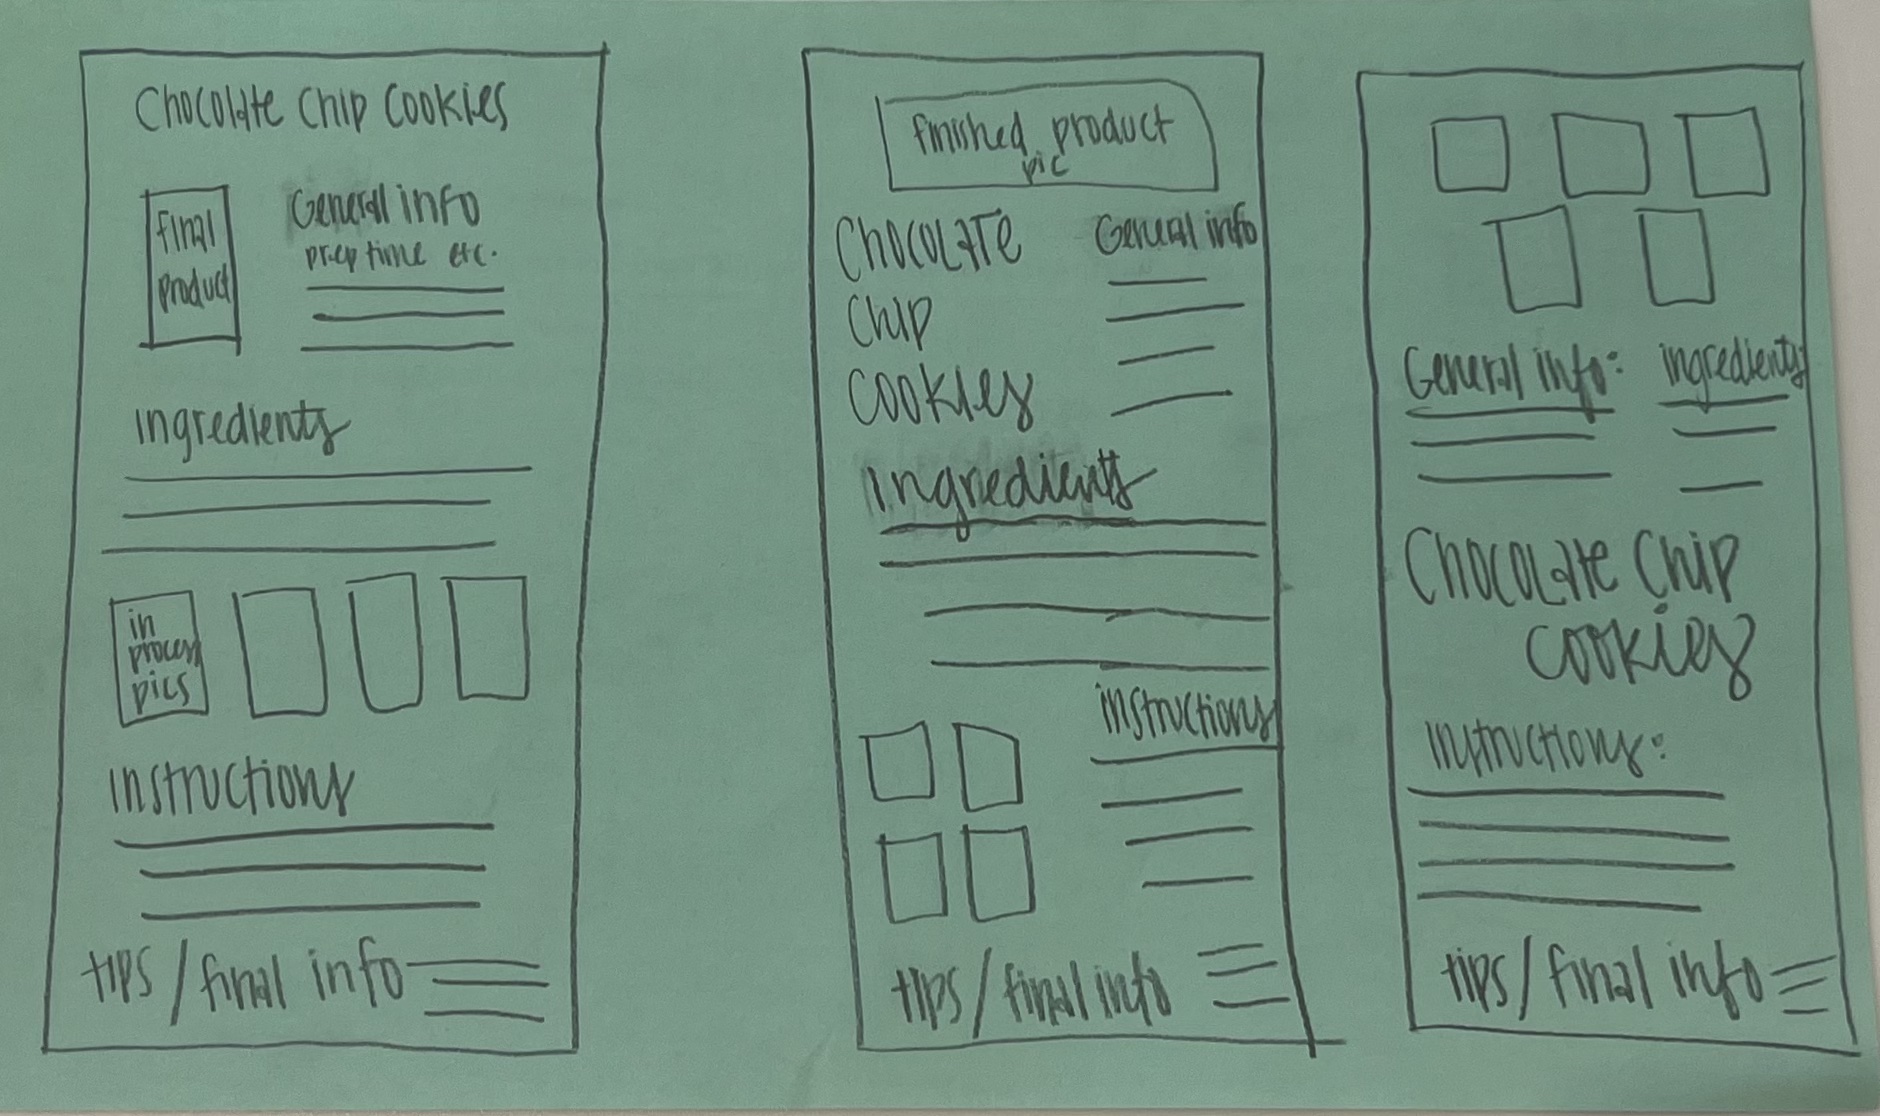 Chocolate Chip Cookies
final
product
General info
prep time etc.
ingredients
in
process
pics
instructions
tips / final info
finished product
pic
Chocolate
Chip
Cookies
General info
ingredients
instructions
tips / final info
General info:
ingredients:
Chocolate Chip
Cookies
instructions:
tips / final info